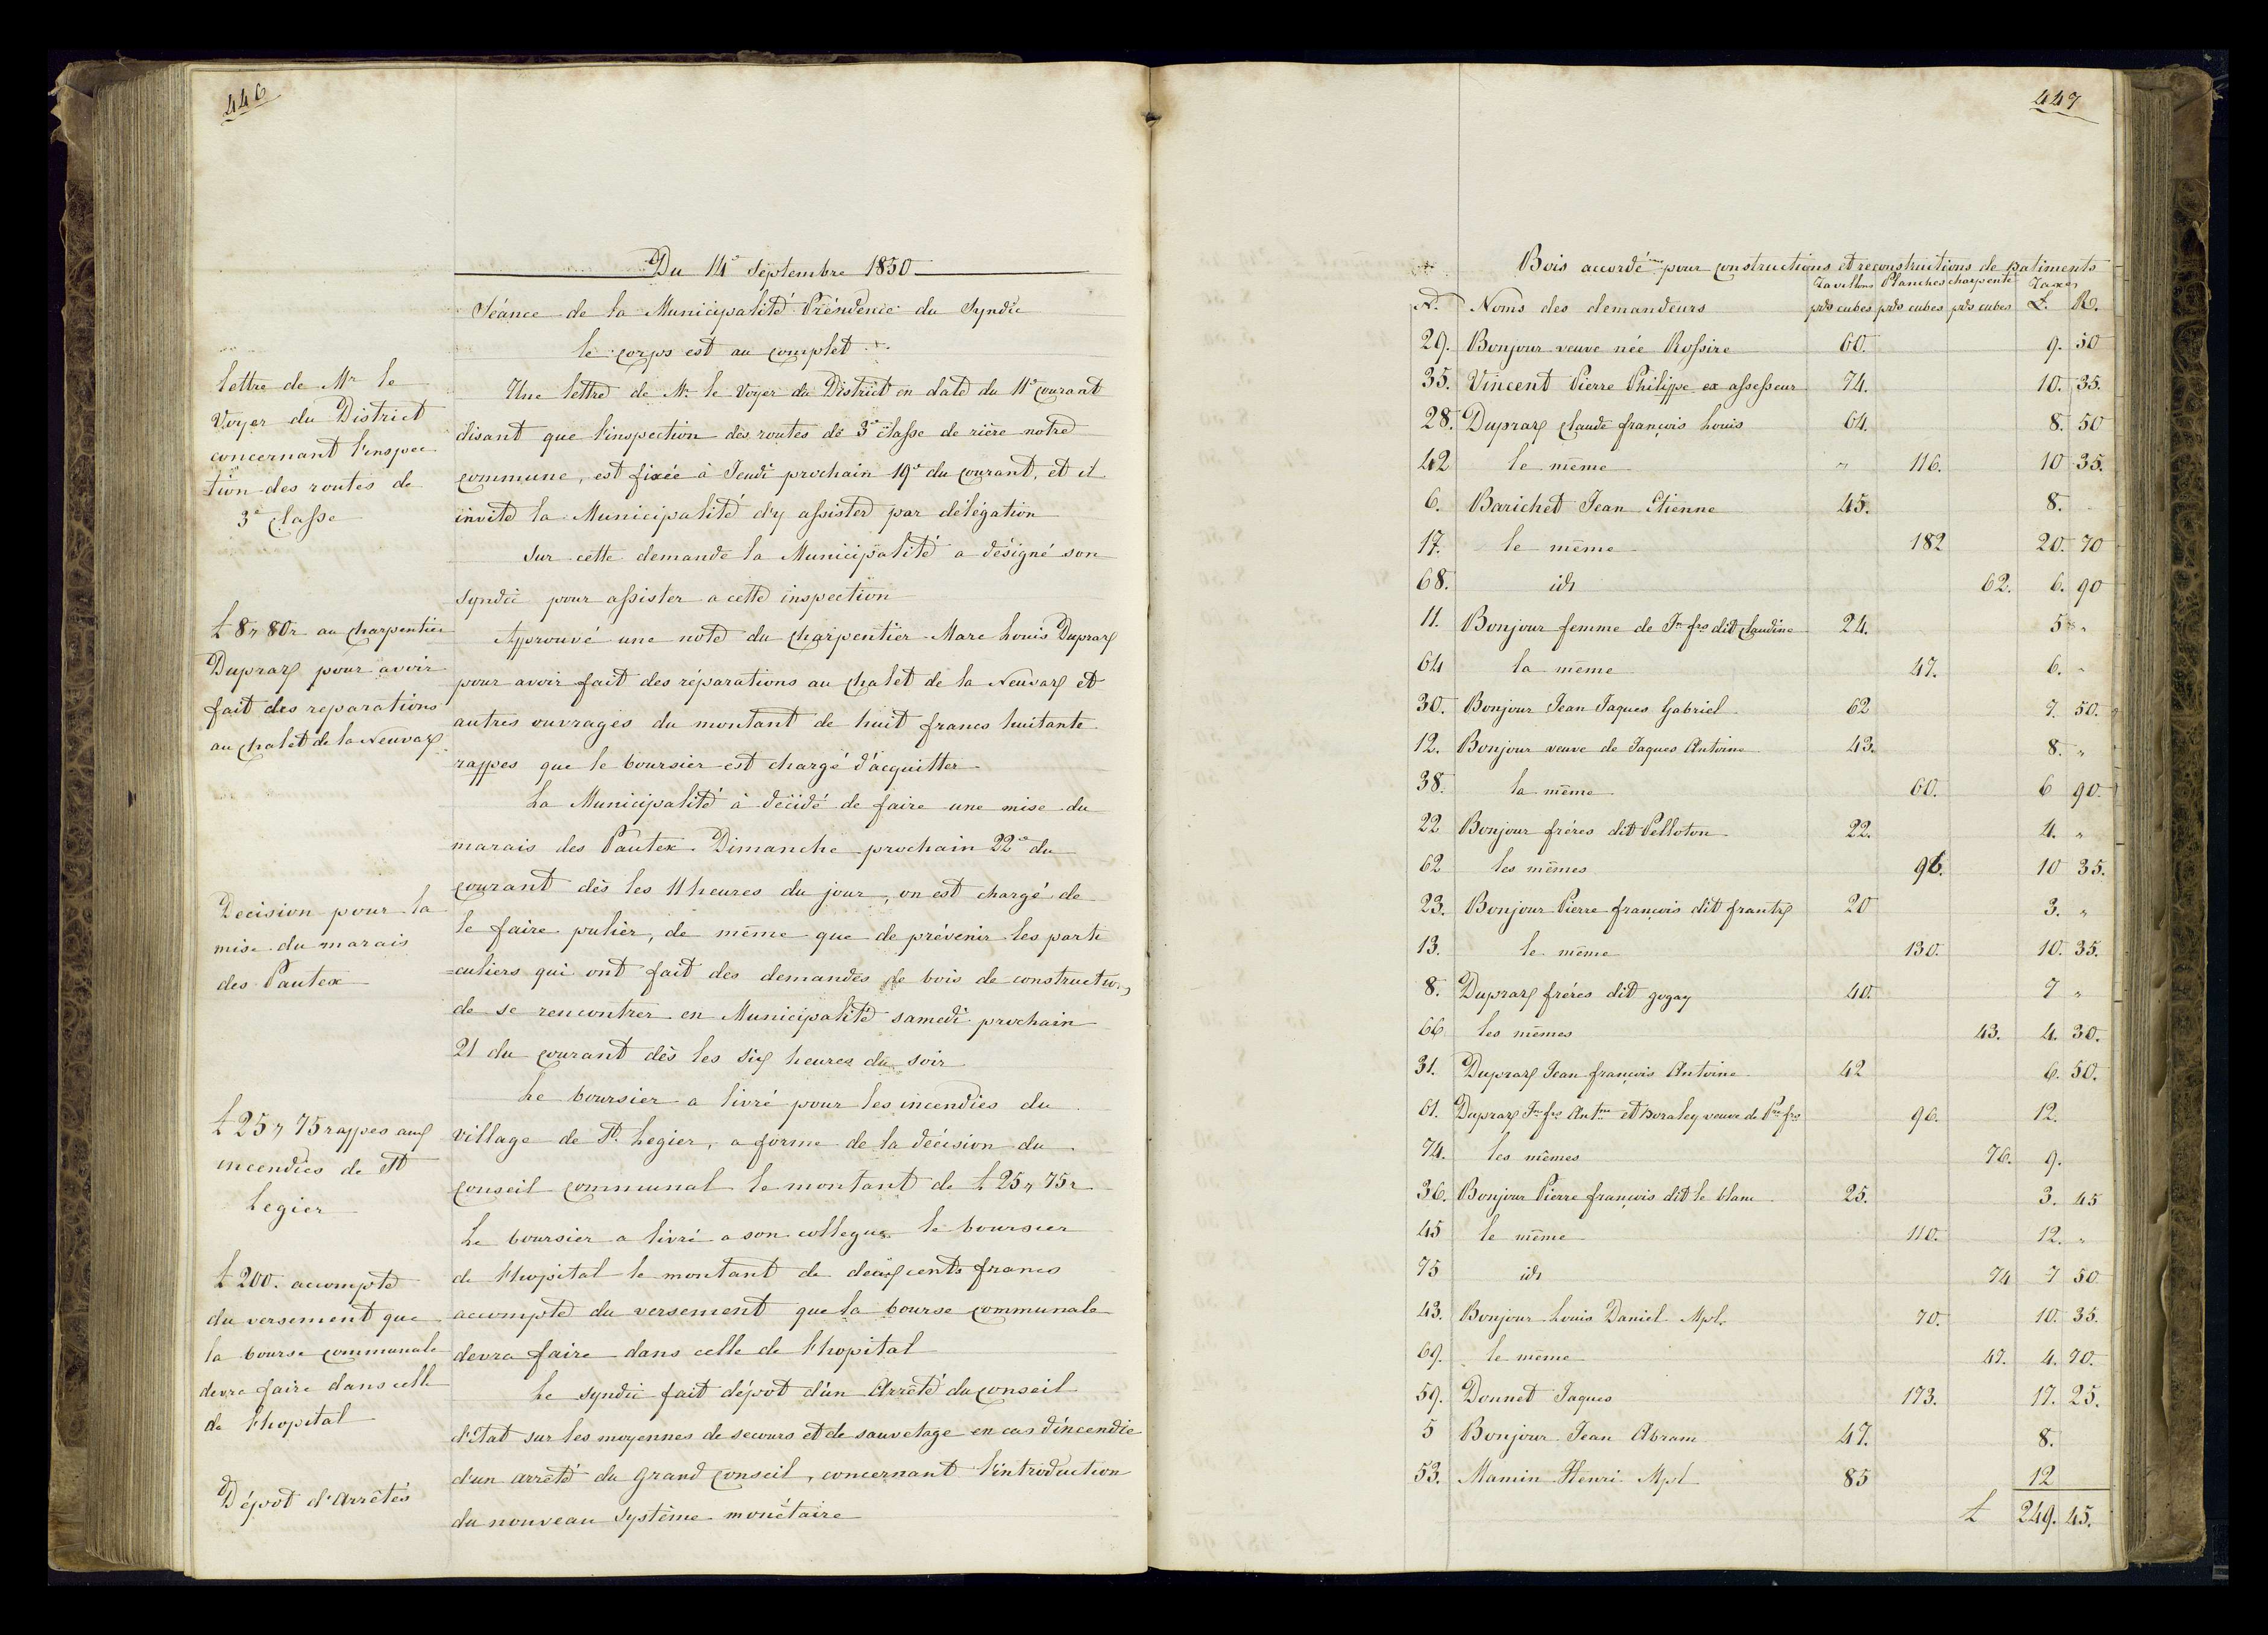 446
Du 14e Septembre 1850
Séance de la Municipalité Présidence du Syndic
le corps est au complet
lettre de Mr le
Voyer du District
concernant l'inspec
tion des routes de
3e classe
Une lettre de Mr le Voyer du District en date du 11e courant
disant que l'inspection des routes de 3e classe de rière notre
commune, est fixée à Jeudi prochain 19e du courant, et il
invite la Municipalité d'y assister par délégation
Sur cette demande la Municipalité a désigné son
Syndic pour assister a cette inspection
£ 8 " 80 r au charpentier
Dupraz pour avoir
fait des reparations
au chalet de la Neuvaz
Approuvé une note du charpentier Marc Louis Dupraz
pour avoir fait des réparations au chalet de la Neuvaz et
autres ouvrages du montant de huit francs huitante
rappes que le boursier est chargé d'acquitter
Decision pour la
mise du marais
des Pautex
La Municipalité à décidé de faire une mise du
marais des Pautex Dimanche prochain 22e du
courant dès les 11 heures du jour, on est chargé de
le faire pulier, de même que de prévenir les parti
=culiers qui ont fait des demandes de bois de construction,
de se rencontrer en Municipalité samedi prochain
21 du courant dès les six heures du soir
£ 25 " 75 rappes aux
incendiés de St
Legier
Le boursier a livré pour les incendiés du
village de St Legier, a forme de la décision du
conseil communal le montant de £ 25 " 75 r
£ 200. accompte
du versement que
la bourse communale
devra faire dans celle
de l'hopital
Le boursier a livré a son collegue le boursier
de l'hopital le montant de deux cents francs
accompte du versement que la bourse communale
devra faire dans celle de l'hopital
Dépot d'Arrêtés
Le syndic fait dépot d'un Arrêté du conseil
d'Etat sur les moyennes de secours et de sauvetage en cas d'incendie
d'un arrêté du Grand Conseil, concernant l'introduction
du nouveau Système monétaire
447
Bois accordé pour constructions et reconstructions de batiments
Tavillons Planches charpente Taxes
No. Noms des demandeurs pds cubes pds cubes pds cubes £. R.
29. Bonjour veuve née Rossire 60. 9. 50
35. Vincent Pierre Philippe ex assesseur 74. 10. 35.
28. Dupraz Claude françois Louis 64. 8. 50
42 le même " 116. 10 35.
6. Barichet Jean Etienne 45. 8.
17. le même 182 20. 70
68. id 62. 6. 90
11. Bonjour femme de Jn frs dit Claudine 24. 5 "
64 la même 47. 6. "
30. Bonjour Jean Jaques Gabriel 62 7. 50.
12. Bonjour veuve de Jaques Antoine 43. 8. "
38. la même 60. 6 90.
22 Bonjour fréres dit Pelloton 22. 4. "
62 les mêmes 96. 10 35.
23. Bonjour Pierre françois dit frantz 20 3. "
13. le même 130. 10. 35.
8. Dupraz fréres dit gogay 40. 7 "
66 les mêmes 43. 4. 30.
31. Dupraz Jean françois Antoine 42 6. 50.
61. Dupraz Jn frs Antne et veuve de Pre frs 96. 12.
74. les mêmes 76. 9.
36. Bonjour Pierre françois dit le blanc 25. 3. 45
45 le même 110. 12. "
75 id 74 7 50
43. Bonjour Louis Daniel Mpl. 70. 10. 35.
69. le même 47. 4. 70.
59. Donnet Jaques 173. 17. 25.
5 Bonjour Jean Abram 47. 8.
53. Mamin Henri Mpl 85 12
£ 249. 45.